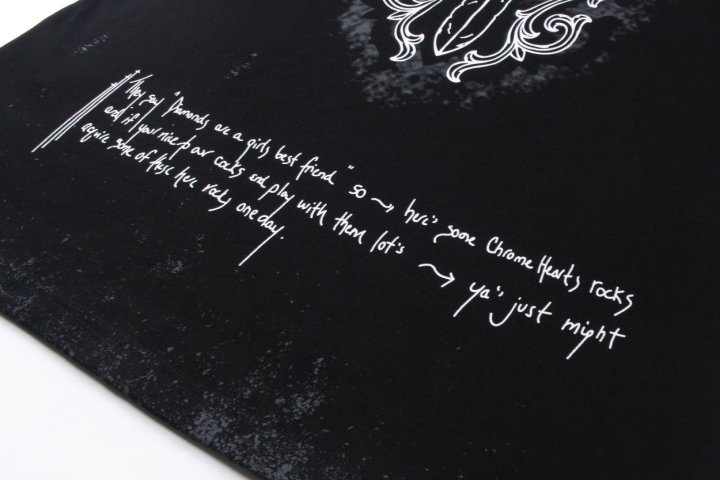 They say "Diamonds are a girls best friend" so → here's some Chrome Hearts rocks
and if your nice to our rocks and play with them lot's → ya's just might
aquire some of these here rocks one day.